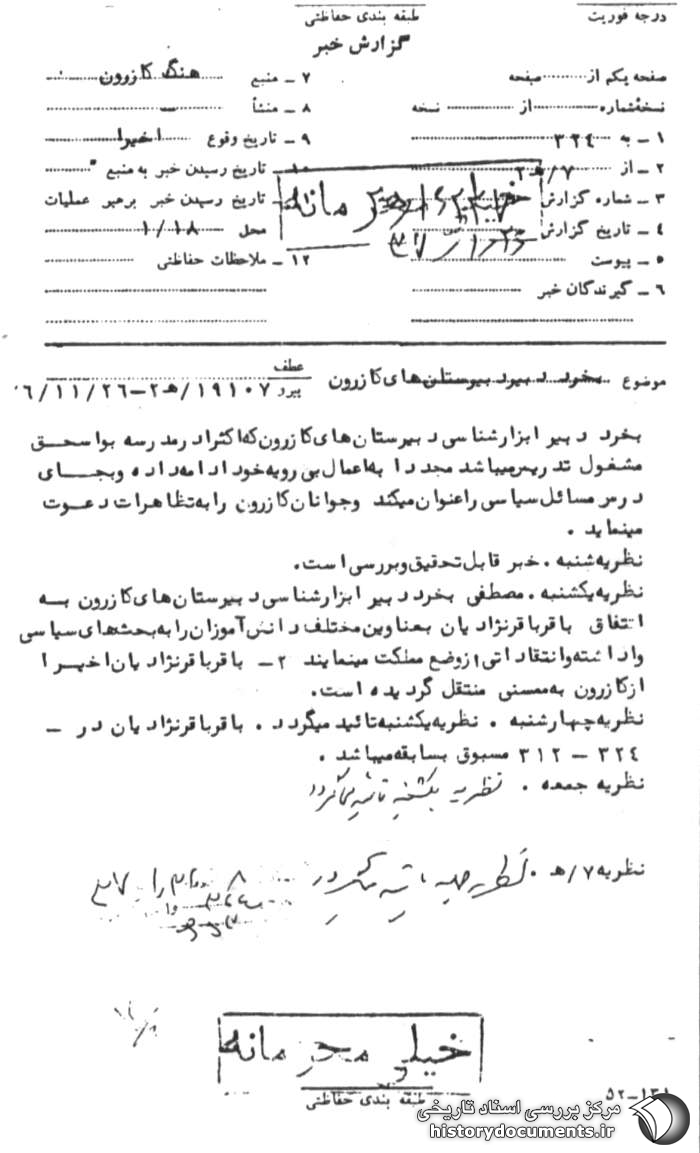 درجه فوریت
طبقه بندی حفاظتی
گزارش خبر
صفحه یکم از صفحه
نسخهٔ شماره از نسخه
۱ – به ۳۲٤
۲ – از ۷/هـ۲
۳ – شماره گزارش
٤ – تاریخ گزارش
۵ – پیوست
۶ – گیرندگان خبر
۷ – منبع هنگ کازرون
۸ – منشأ
۹ – تاریخ وقوع اخیرا
۱۰ – تاریخ رسیدن خبر به منبع
تاریخ رسیدن خبر برهبر عملیات
محل ۱/۱۸
۱۲ – ملاحظات حفاظتی
خیلی محرمانه
موضوع بخرد دبیر دبیرستان‌های کازرون
عطف
پیرو ۱۹۱۰۷/هـ۲–۶/۱۱/۲۶
بخرد دبیر ابزارشناسی دبیرستان‌های کازرون که اکثرا در مدرسه بواسحق
مشغول تدریس میباشد مجددا به اعمال بی رویه خود ادامه داده و بجای
درس مسائل سیاسی را عنوان میکند وجوانان کازرون را به تظاهرات دعوت
مینماید .
نظریه شنبه . خبر قابل تحقیق و بررسی است.
نظریه یکشنبه . مصطفی بخرد دبیر ابزارشناسی دبیرستان‌های کازرون به
اتفاق باقر باقرنژادیان بعناوین مختلف دانش آموزان را به بحثهای سیاسی
واداشته وانتقاداتی از وضع مملکت مینمایند ۲– باقر باقرنژادیان اخیرا
از کازرون به ممسنی منتقل گردیده است.
نظریه چهارشنبه . نظریه یکشنبه تائید میگردد . باقر باقرنژادیان در –
۳۲٤ – ۳۱۲ مسبوق بسابقه میباشد .
نظریه جمعه . نظریه یکشنبه تائید میگردد
نظریه ۷/هـ . نظریه جمعه تائید میگردد
خیلی محرمانه
طبقه بندی حفاظتی
۵۲–۱۳۱
مرکز بررسی اسناد تاریخی
historydocuments.ir